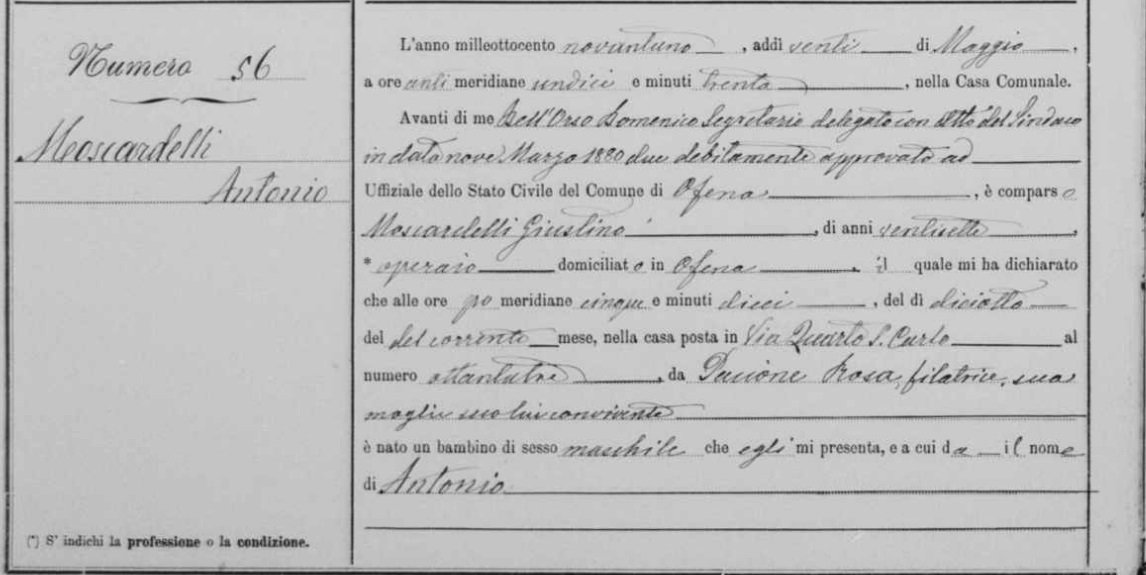 Numero 56
Moscardelli
Antonio
(*) S' indichi la professione o la condizione.
L'anno milleottocento novantuno, addì venti di Maggio,
a ore anti meridiane undici e minuti trenta, nella Casa Comunale.
Avanti di me Dell'Orso Domenico Segretario delegato con Atto del Sindaco
in data nove Marzo 1880 due debitamente approvato ad
Uffiziale dello Stato Civile del Comune di Ofena, è comparso
Moscardelli Giustino, di anni ventisette,
* operaio domiciliato in Ofena, il quale mi ha dichiarato
che alle ore po meridiane cinque e minuti dieci, del dì diciotto
del del corrente mese, nella casa posta in Via Quarto S. Carlo al
numero ottantatre, da Rosa, filatrice, sua
moglie seco lui convivente
è nato un bambino di sesso maschile che egli mi presenta, e a cui da il nome
di Antonio